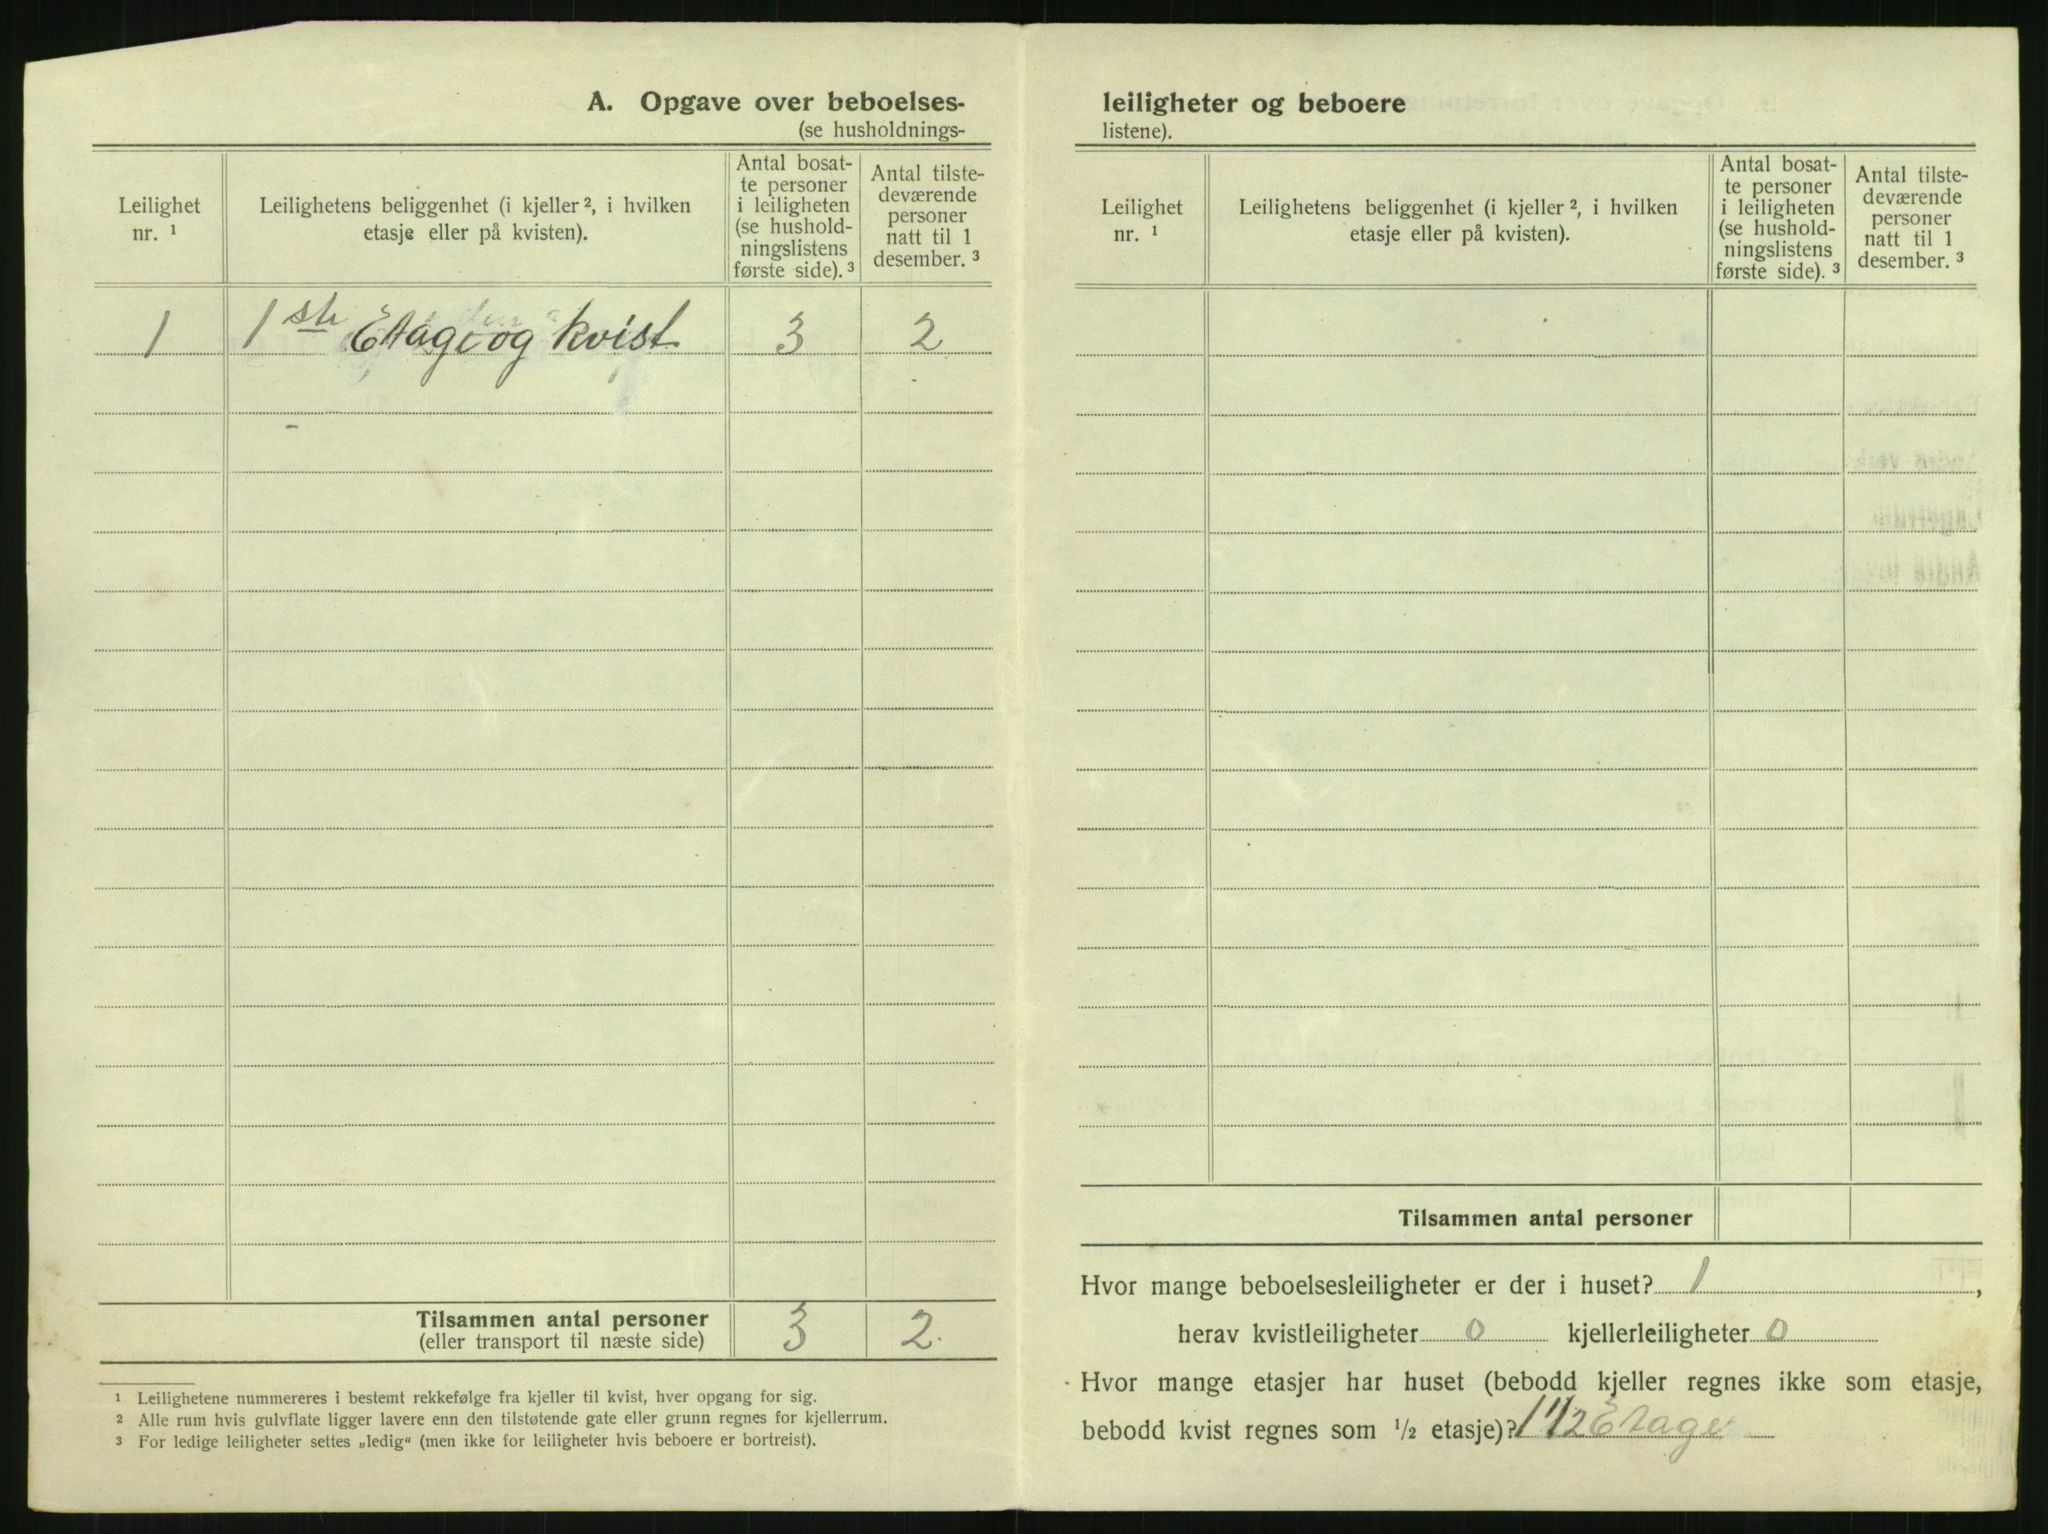 A. Opgave over beboelses-
(se husholdnings-
Leilighet nr. ¹
Leilighetens beliggenhet (i kjeller ², i hvilken etasje eller på kvisten).
Antal bosat-
te personer
i leiligheten
(se hushold-
ningslistens
første side). ³
Antal tilste-
deværende
personer
natt til 1
desember. ³
1 1ste Etage og kvist 3 2
Tilsammen antal personer 3 2.
(eller transport til næste side)
¹ Leilighetene nummereres i bestemt rekkefølge fra kjeller til kvist, hver opgang for sig.
² Alle rum hvis gulvflate ligger lavere enn den tilstøtende gate eller grunn regnes for kjellerrum.
³ For ledige leiligheter settes „ledig“ (men ikke for leiligheter hvis beboere er bortreist).
leiligheter og beboere
listene).
Leilighet nr. ¹
Leilighetens beliggenhet (i kjeller ², i hvilken etasje eller på kvisten).
Antal bosat-
te personer
i leiligheten
(se hushold-
ningslistens
første side). ³
Antal tilste-
deværende
personer
natt til 1
desember. ³
Tilsammen antal personer
Hvor mange beboelsesleiligheter er der i huset? 1,
herav kvistleiligheter 0 kjellerleiligheter 0
Hvor mange etasjer har huset (bebodd kjeller regnes ikke som etasje,
bebodd kvist regnes som ½ etasje)? 1 1/2 Etage